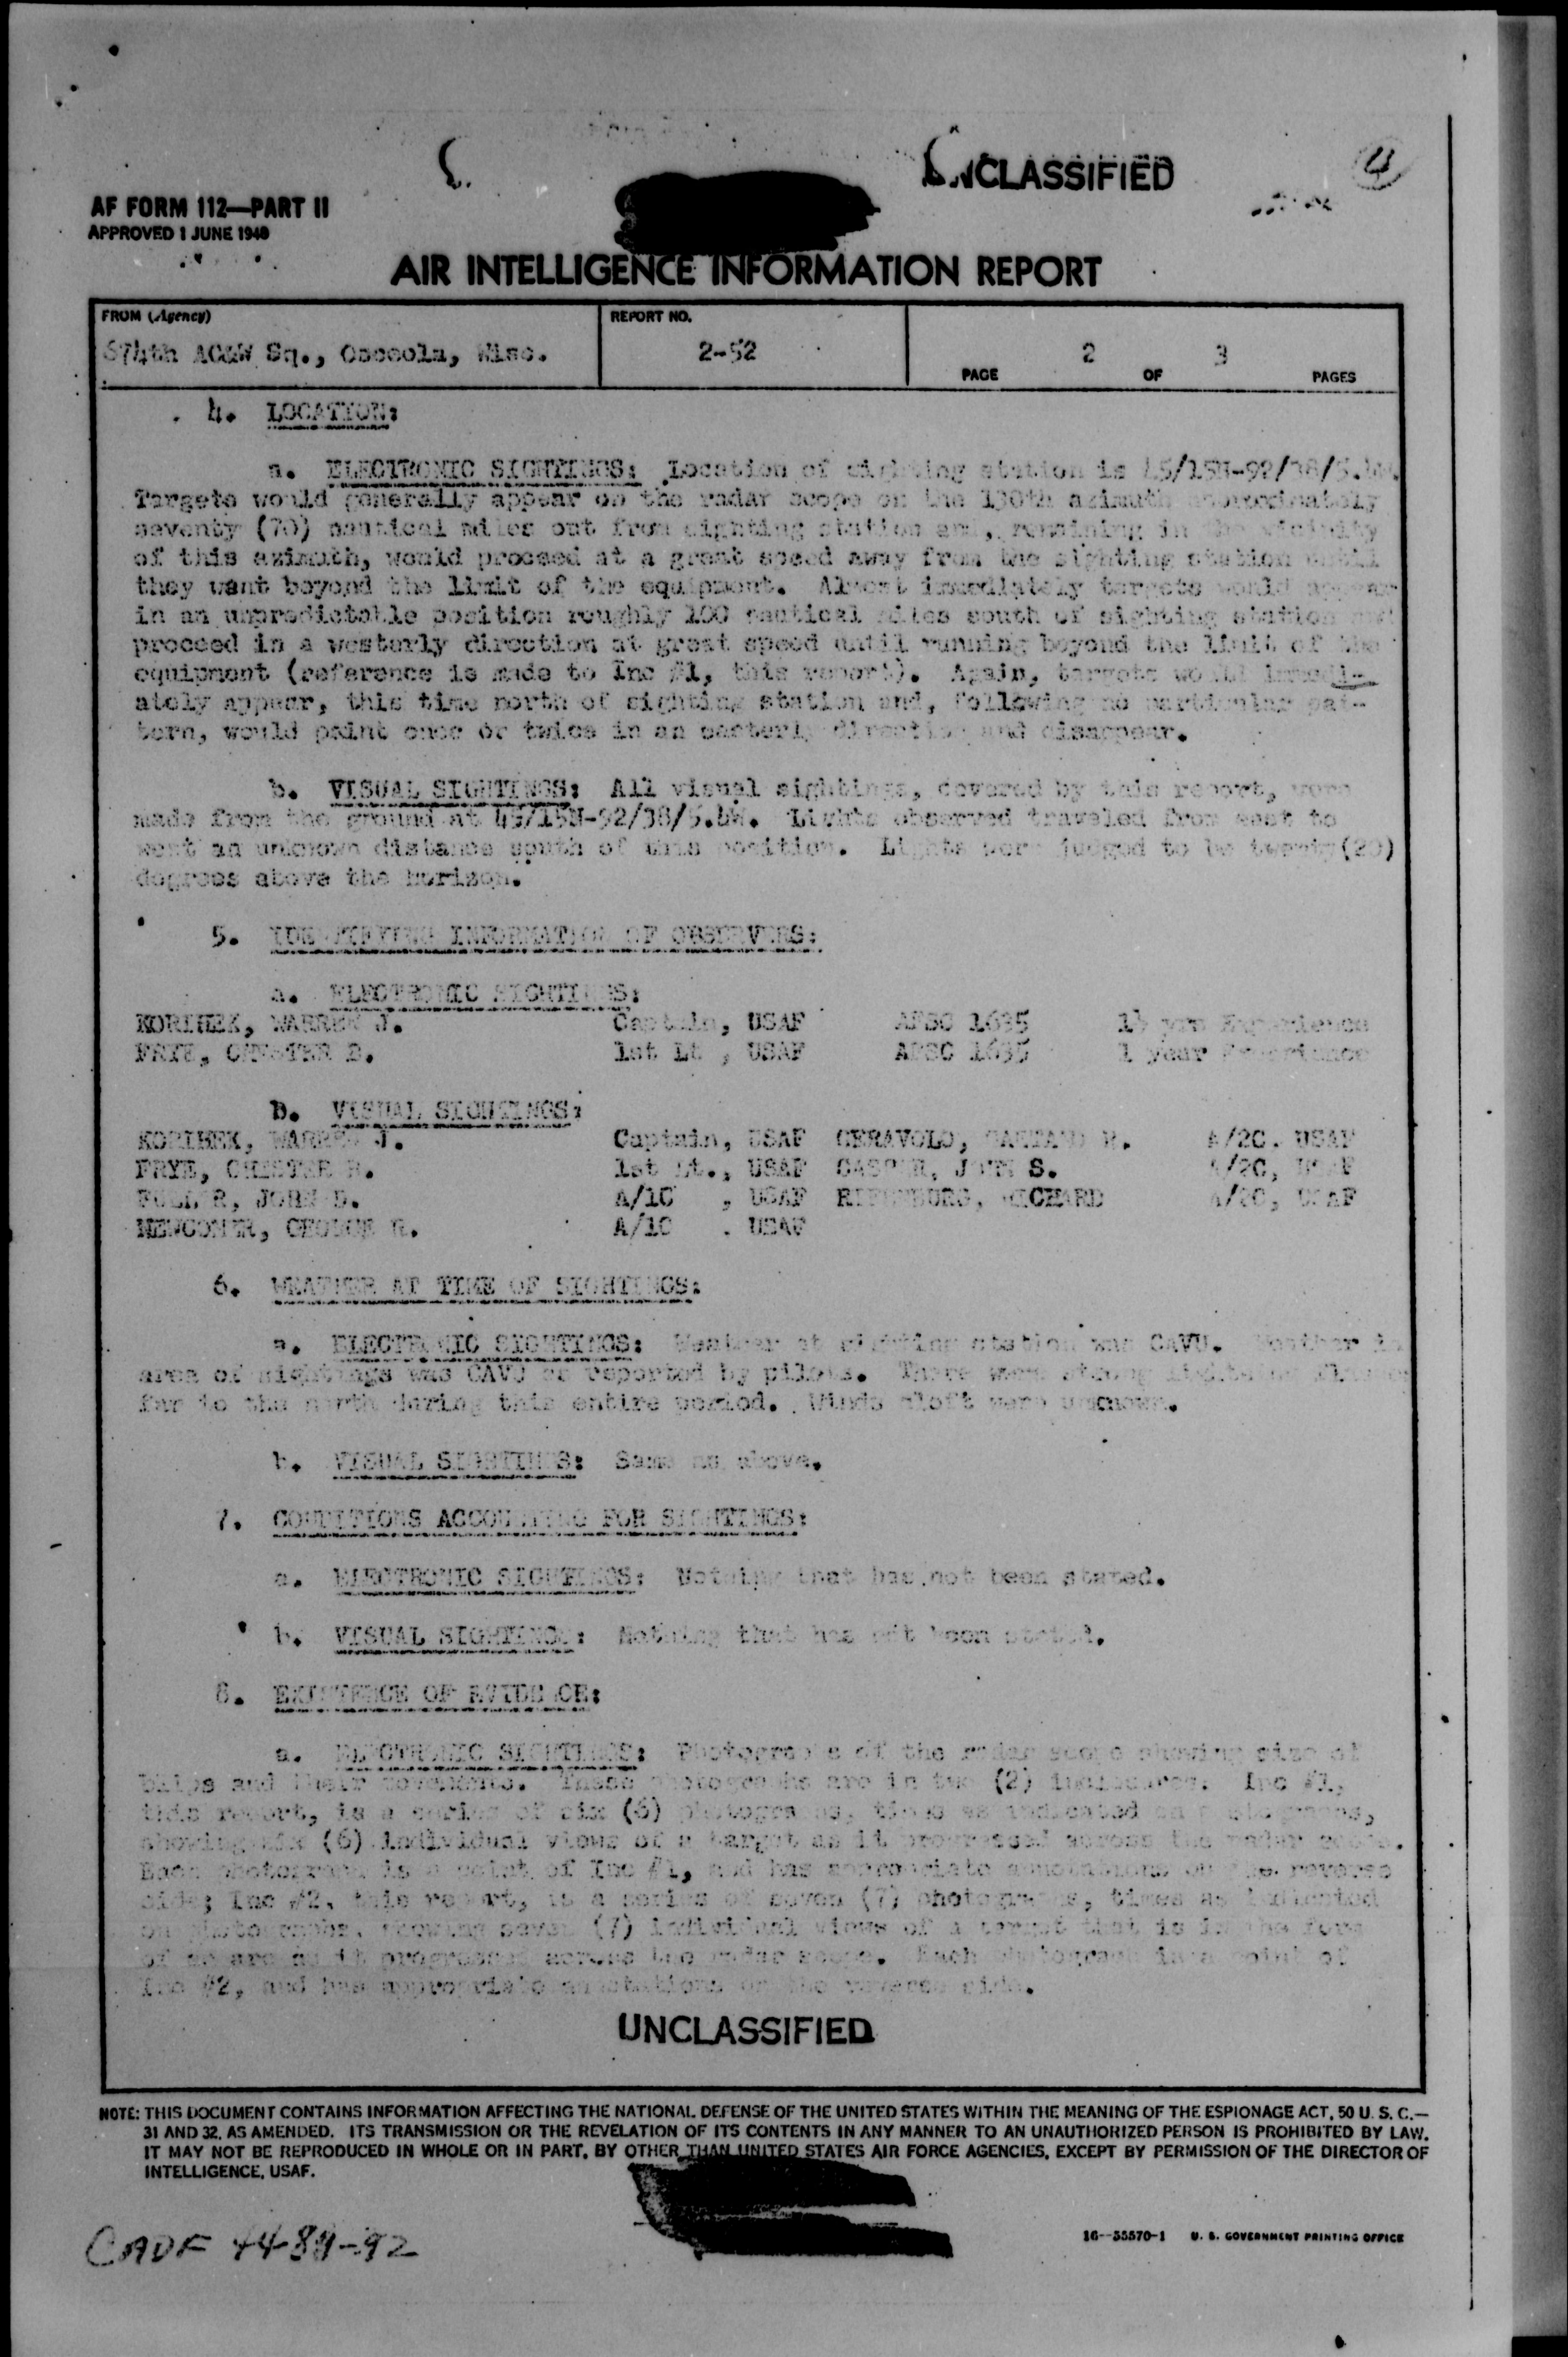 UNCLASSIFIED
4
AF FORM 112—PART II
APPROVED 1 JUNE 1948
AIR INTELLIGENCE INFORMATION REPORT
FROM (Agency)
REPORT NO.
674th AC&W Sq., Osceola, Wisc.
2-52
2 3
PAGE OF PAGES
4. LOCATION:
a. ELECTRONIC SIGHTINGS: Location of sighting station is 45/15N-92/38/5.4W.
Targets would generally appear on the radar scope on the 130th azimuth approximately
seventy (70) nautical miles out from sighting station and, remaining in the vicinity
of this azimuth, would proceed at a great speed away from the sighting station until
they want beyond the limit of the equipment. Almost immediately targets would appear
in an unpredictable position roughly 100 nautical miles south of sighting station and
proceed in a westerly direction at great speed until running beyond the limit of the
equipment (reference is made to Inc #1, this report). Again, targets would immedi-
ately appear, this time north of sighting station and, following no particular pat-
tern, would paint once or twice in an easterly direction and disappear.
b. VISUAL SIGHTINGS: All visual sightings, covered by this report, were
made from the ground at 45/15N-92/38/5.4W. Lights observed traveled from east to
west an unknown distance south of this position. Lights were judged to be twenty(20)
degrees above the horizon.
5. IDENTIFYING INFORMATION OF OBSERVERS:
a. ELECTRONIC SIGHTINGS:
KORIHEK, WARREN J. Captain, USAF AFSC 1635 1½ yrs Experience
FRYE, CHESTER B. 1st Lt , USAF AFSC 1635 1 year Experience
b. VISUAL SIGHTINGS:
KORIHEK, WARREN J. Captain, USAF CERAVOLO, R. A/2C. USAF
FRYE, CHESTER 1st Lt., USAF JOHN S. A/2C, USAF
JOHN D. A/1C , USAF RICHARD A/2C, USAF
NEWCOMER, GEORGE R. A/1C . USAF
6. WEATHER AT TIME OF SIGHTINGS:
a. ELECTRONIC SIGHTINGS: Weather at sighting station was CAVU. Weather in
area of sightings was CAVU as reported by pilots. There were strong lightning flashes
far to the north during this entire period. Winds aloft were unknown.
b. VISUAL SIGHTINGS: Same as above.
7. CONDITIONS ACCOUNTING FOR SIGHTINGS:
a. ELECTRONIC SIGHTINGS: Nothing that has not been stated.
b. VISUAL SIGHTINGS: Nothing that has not been stated.
8. EXISTENCE OF EVIDENCE:
a. ELECTRONIC SIGHTINGS: Photographs of the radar scope showing size of
blips and their movements. These photographs are in two (2) inclosures. Inc #1,
this report, is a series of six (6) photographs, times as indicated on photographs,
showing six (6) individual views of a target as it progressed across the radar scope.
Each photograph is a point of Inc #1, and has appropriate annotations on the reverse
side; Inc #2, this report, is a series of seven (7) photographs, times as indicated
on photographs, showing seven (7) individual views of a target that is in the form
of an arc as it progressed across the radar scope. Each photograph is a point of
Inc #2, and has appropriate annotations on the reverse side.
UNCLASSIFIED
NOTE: THIS DOCUMENT CONTAINS INFORMATION AFFECTING THE NATIONAL DEFENSE OF THE UNITED STATES WITHIN THE MEANING OF THE ESPIONAGE ACT, 50 U. S. C.—
31 AND 32, AS AMENDED. ITS TRANSMISSION OR THE REVELATION OF ITS CONTENTS IN ANY MANNER TO AN UNAUTHORIZED PERSON IS PROHIBITED BY LAW.
IT MAY NOT BE REPRODUCED IN WHOLE OR IN PART, BY OTHER THAN UNITED STATES AIR FORCE AGENCIES, EXCEPT BY PERMISSION OF THE DIRECTOR OF
INTELLIGENCE, USAF.
CADF 44-89-92
16—55570-1 U. S. GOVERNMENT PRINTING OFFICE